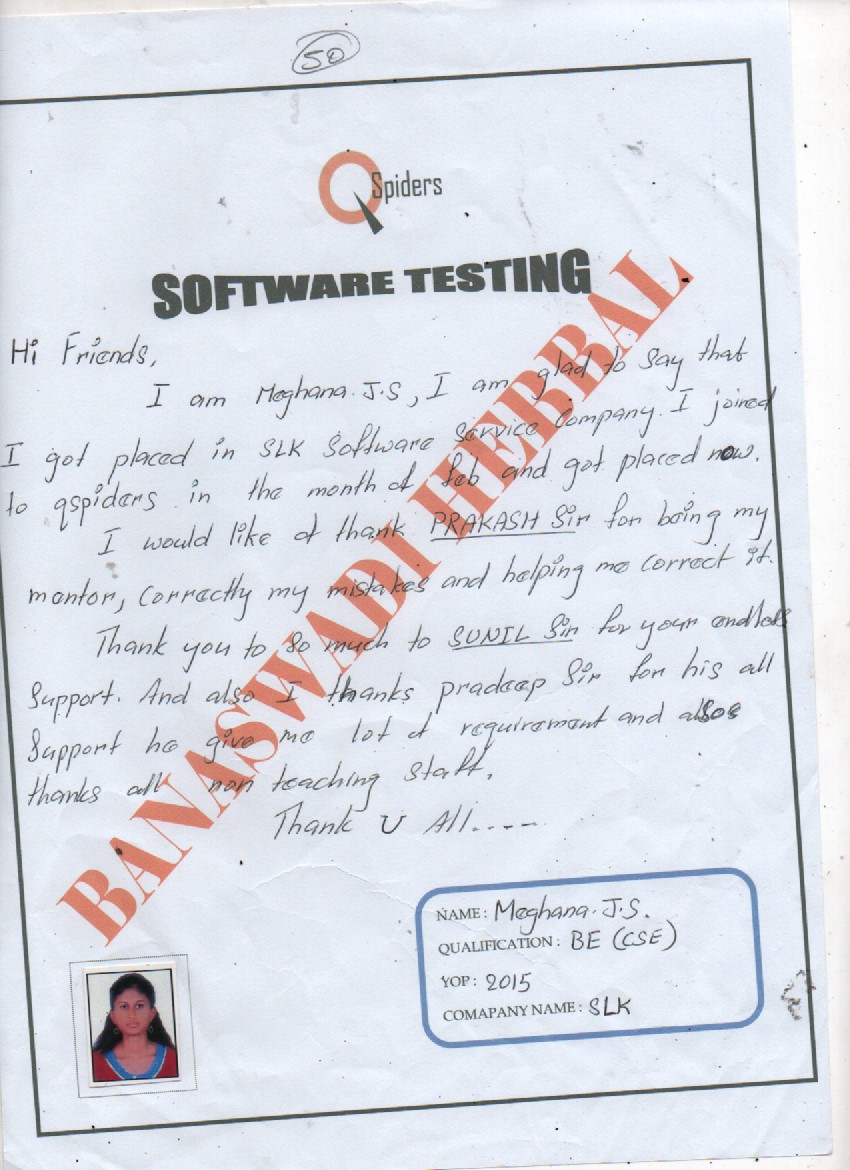 50
Spiders
SOFTWARE TESTING
BANASWADI HEBBAL
Hi Friends,
I am Meghana. J.S, I am glad to say that
I got placed in SLK Software Service Company. I joined
to qspiders in the month of feb and got placed now.
I would like of thank PRAKASH Sir for being my
mentor, correctly my mistakes and helping me correct it.
Thank you to so much to SUNIL Sir for your endless
Support. And also I thanks pradeep Sir for his all
Support he give me lot of requirement and also
thanks all non teaching staff.
Thank U All.....
NAME : Meghana. J.S.
QUALIFICATION : BE (CSE)
YOP : 2015
COMAPANY NAME : SLK